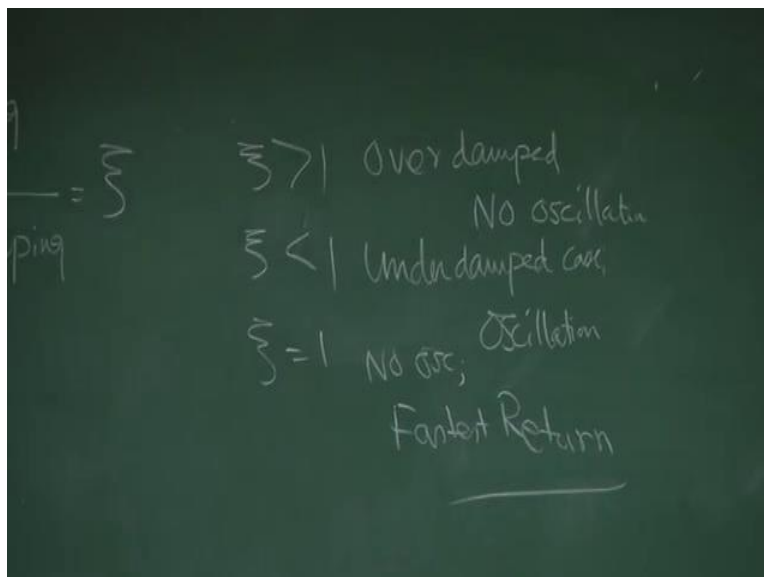 = ξ
ping
ξ > 1 Over damped
No oscillatin
ξ < 1 Underdamped case,
Oscillation
ξ = 1 No osc;
Fastest Return